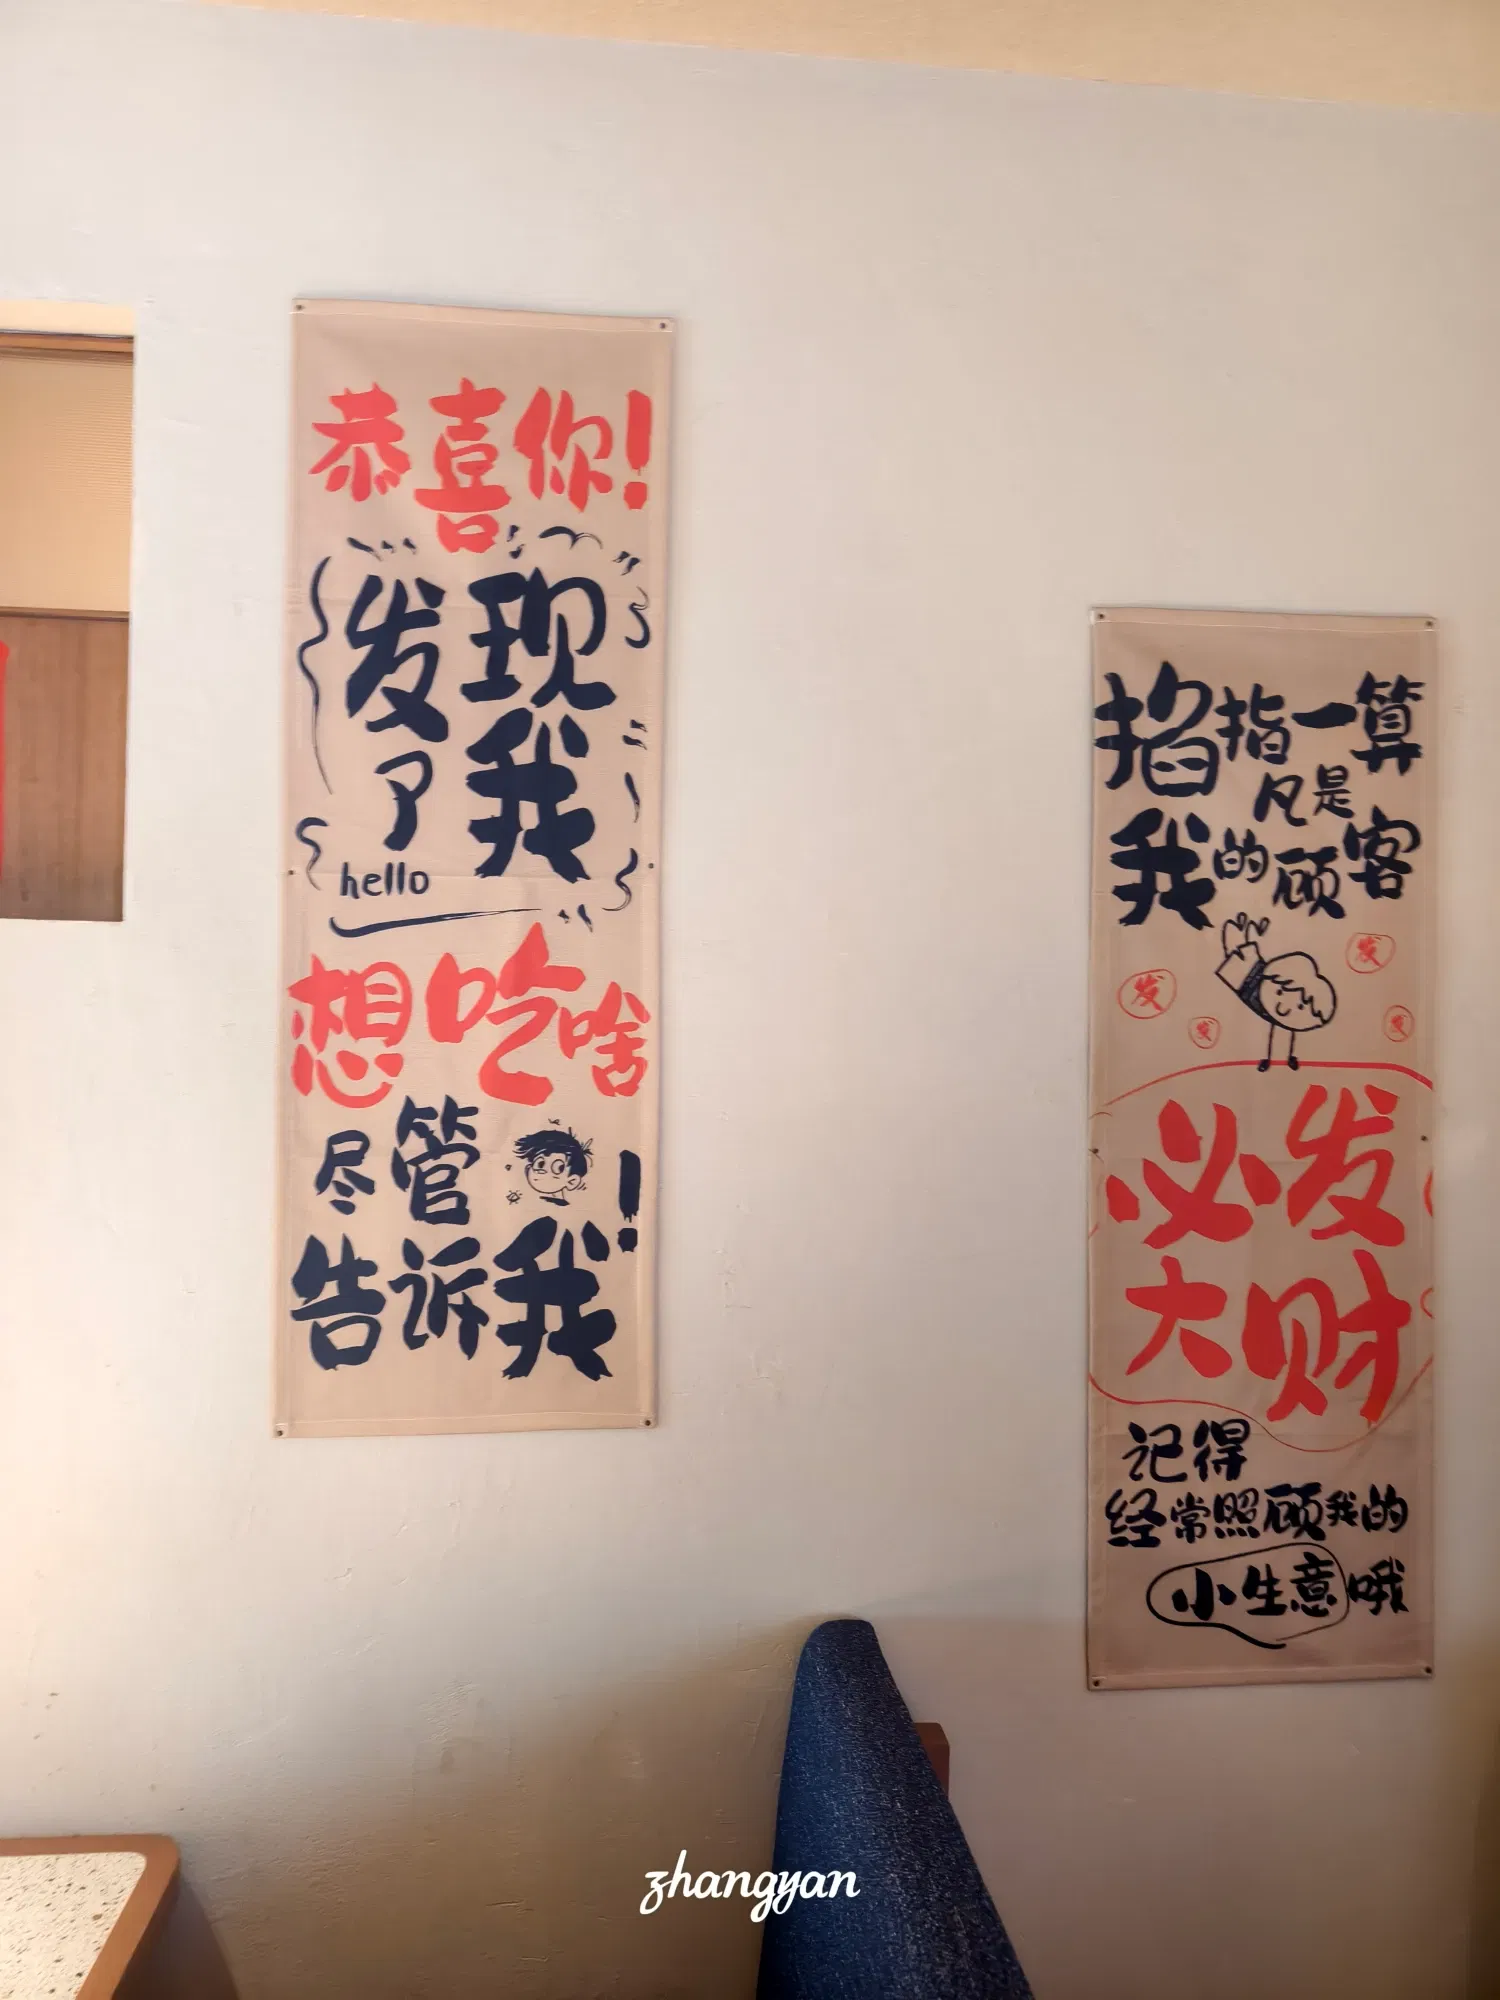 恭喜你!
发现
了我
hello
想吃啥
尽管
告诉我!
掐指一算
凡是
我的顾客
发
发
发
发
必发
大财
记得
经常照顾我的
小生意哦
zhangyan